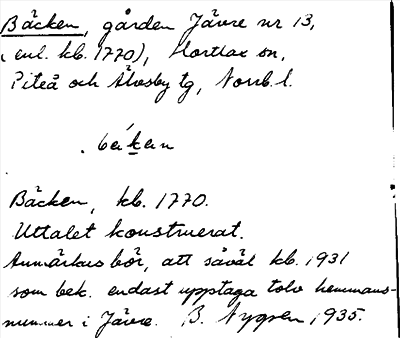 Bäcken, gården Jävre nr 13,
(enl. kb. 1770), Hortlax sn,
Piteå och Älvsby tg, Norrb. l.
Bäcken, kb. 1770.
Uttalet konstruerat.
Anmärkas bör, att såväl kb. 1931
som bek. endast upptaga tolv hemmans-
nummer i Jävre. B. Nygren 1935.